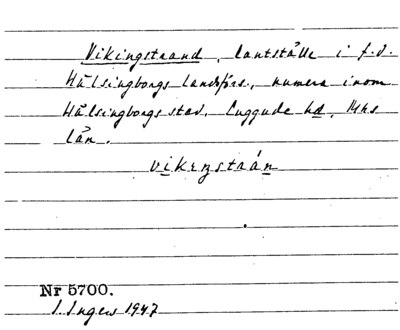 Vikingstrand, lantställe i f.d.
Hälsingborgs landsförs., numera inom
Hälsingborgs stad. Luggude hd, Mhs
län.
vikeŋstrán
Nr 5700.
I. Ingers 1947